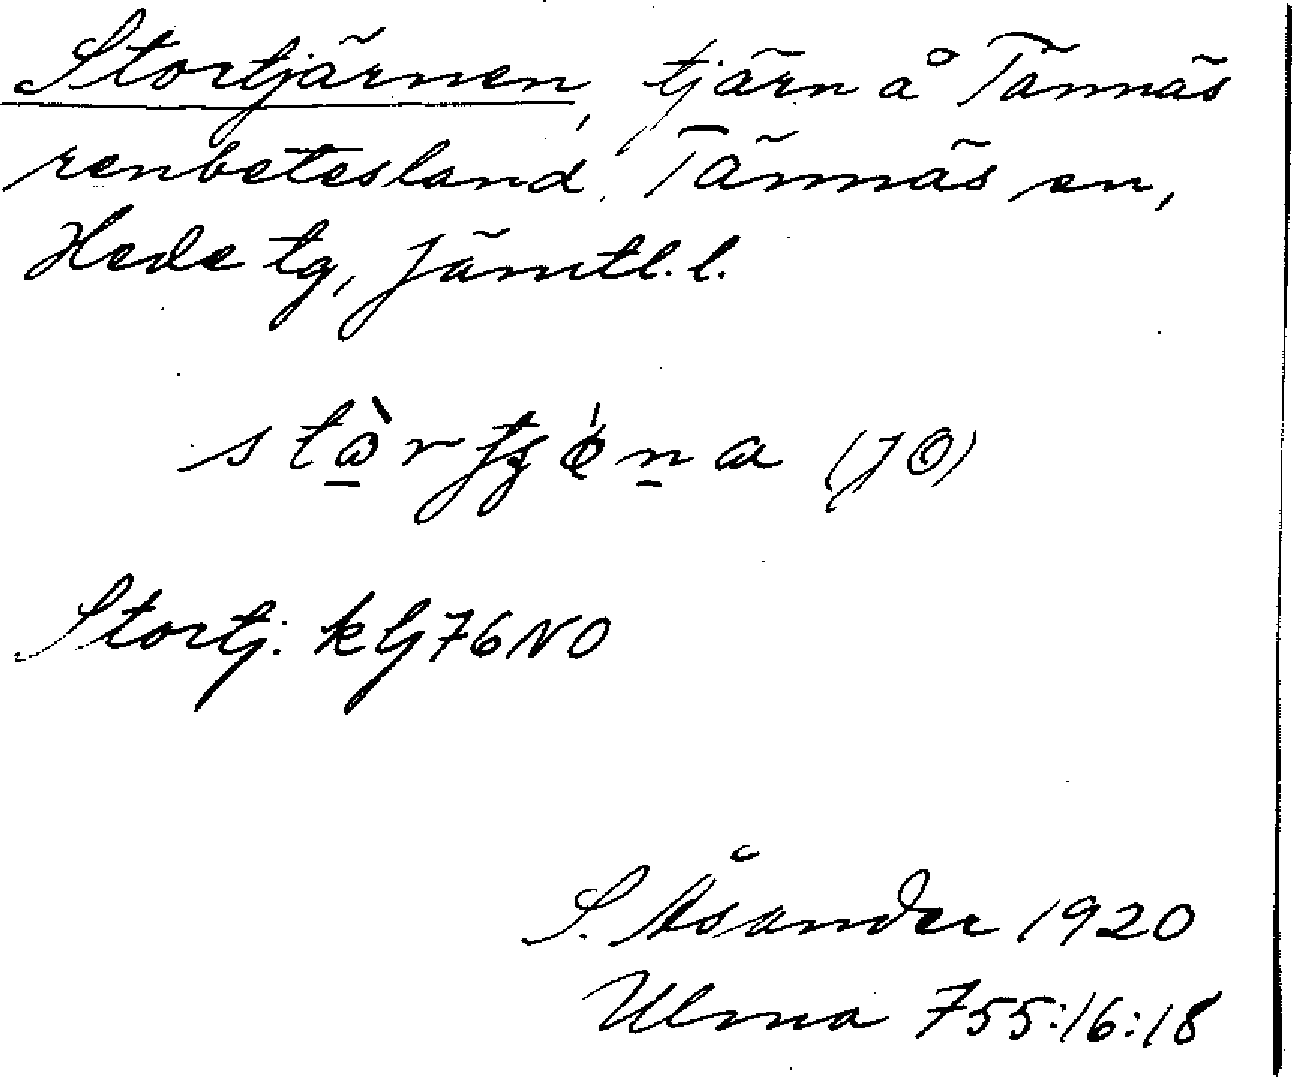 Stortjärnen, tjärn å Tännäs
renbetesland, Tännäs sn,
Hede tg, Jämtl. l.
(JÖ)
Stortj: k Lj 76 NO
S. Åsander 1920
Ulma 755:16:18